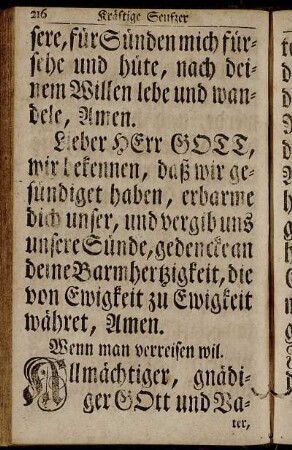 216 Kräftige Seufzer
sere, für Sünden mich für-
sehe und hüte, nach dei-
nem Willen lebe und wan-
dele, Amen.
Lieber HErr GOTT,
wir bekennen, daß wir ge-
sündiget haben, erbarme
dich unser, und vergib uns
unsere Sünde, gedencke an
deine Barmhertzigkeit, die
von Ewigkeit zu Ewigkeit
währet, Amen.
Wenn man verreisen wil.
Allmächtiger, gnädi-
ger GOtt und Va-
ter,